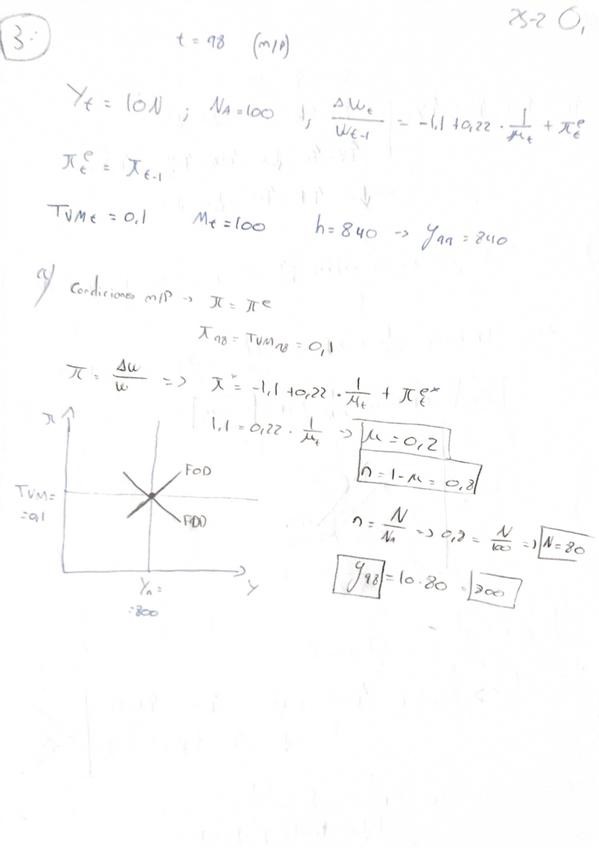 25-2 O,
3.
t = 98 (m/P)
Yt = 10N ; NA = 100 ; ΔWt/Wt-1 = -1,1 + 0,22 · 1/μt + πt^e
πt^e = πt-1
TVMt = 0,1 Mt = 100 h = 840 -> y99 = 840
a) Condiciones m/P -> π = π^e
π98 = TVM98 = 0,1
π = Δw/w => π = -1,1 + 0,22 · 1/μt + πt^e
1,1 = 0,22 · 1/μt -> μ = 0,2
n = 1 - μ = 0,8
n = N/NA -> 0,8 = N/100 => N = 80
y98 = 10 · 80 = 800
π
FOD
TVM =
= 0,1
FDD
Yn =
= 800
Y